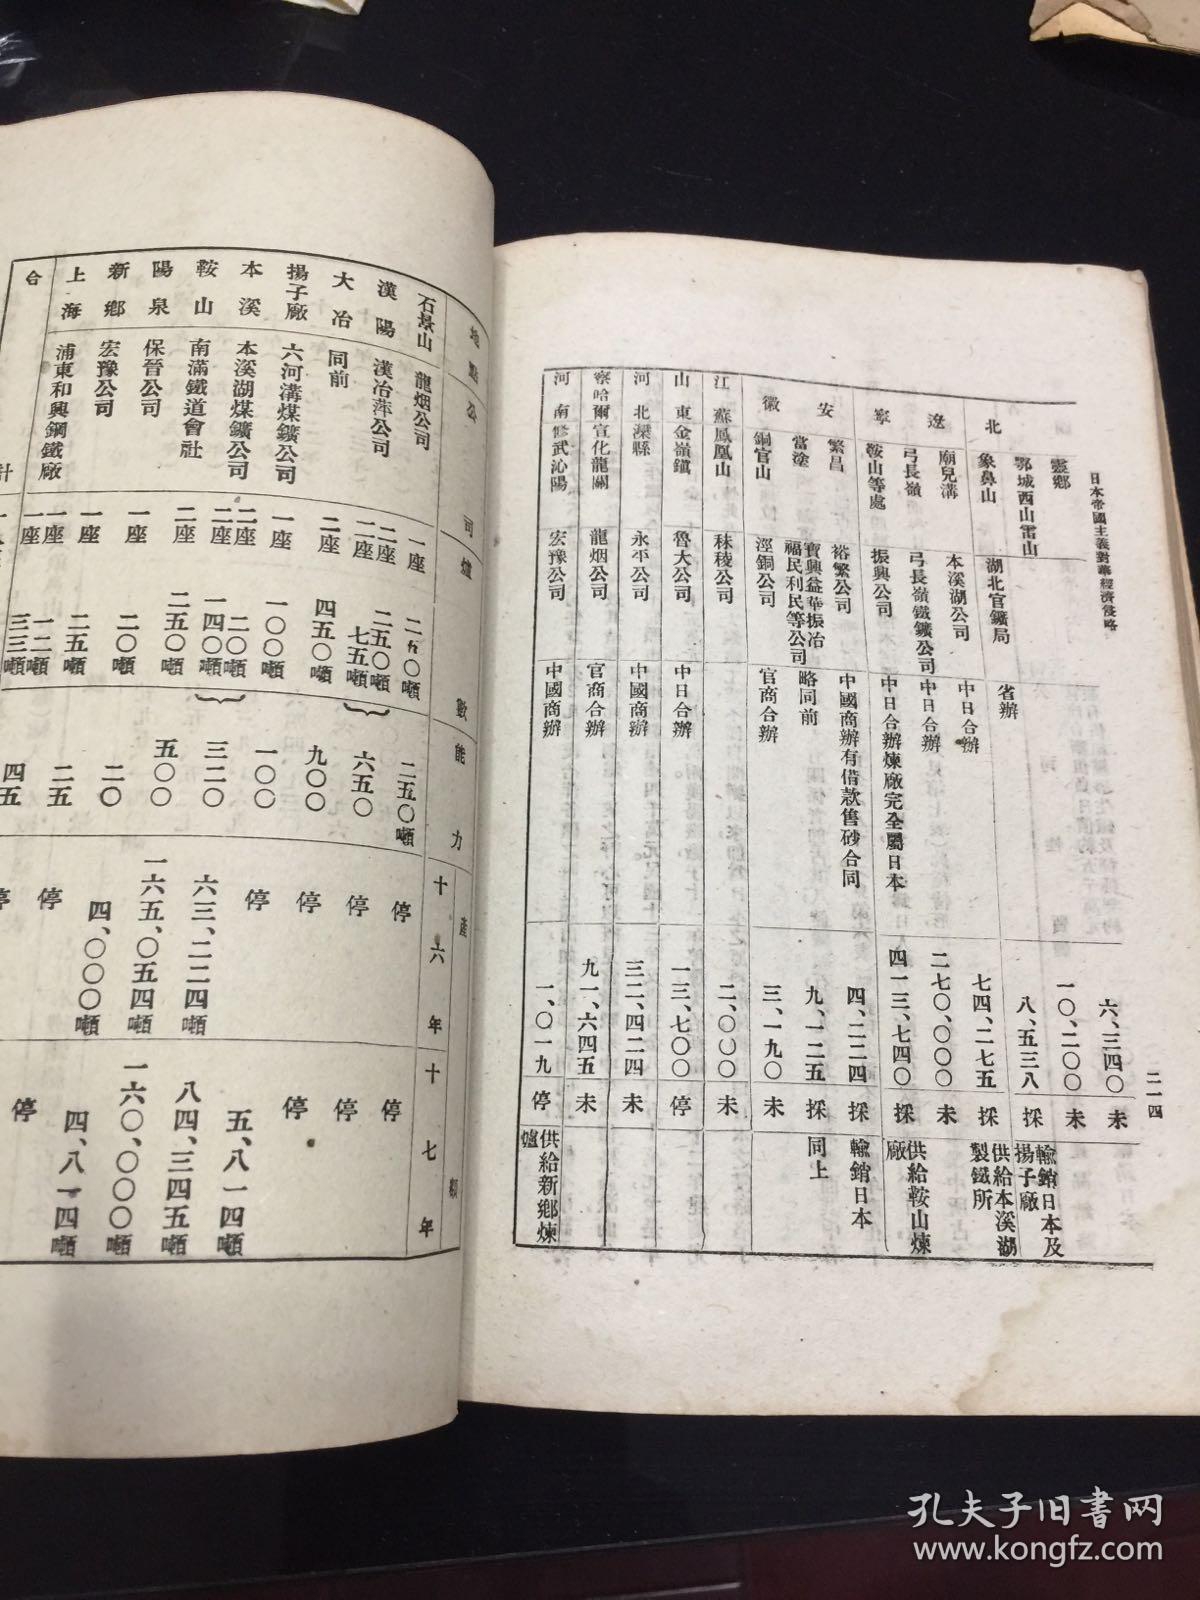 日本帝國主義對華經濟侵略
二一四
靈鄉
六、三四〇 未
鄂城西山雷山
一〇、二〇〇 未
北 象鼻山 湖北官鑛局 省辦
八、五三八 採 輸銷日本及揚子廠
遼寧
廟兒溝 本溪湖公司 中日合辦 七四、二七五 採 供給本溪湖製鐵所
弓長嶺 弓長嶺鐵鑛公司 中日合辦 二七〇、〇〇〇 未
鞍山等處 振興公司 中日合辦煉廠完全屬日本 四一三、七四〇 採 供給鞍山煉廠
安徽
繁昌 裕繁公司 中國商辦有借款售砂合同 四、二二四 採 輸銷日本
當塗 寶興益華振冶福民利民等公司 略同前 九、一二五 採 同上
銅官山 涇銅公司 官商合辦 三、一九〇 未
江蘇 鳳凰山 秣稜公司 二、〇〇〇 未
山東 金嶺鎮 魯大公司 中日合辦 一三、七〇〇 停
河北 灤縣 永平公司 中國商辦 三二、四二四 未
察哈爾 宣化龍關 龍烟公司 官商合辦 九一、六四五 未
河南 修武沁陽 宏豫公司 中國商辦 一、〇一九 停 供給新鄉煉爐
地點 公司 爐數 能力 產額 十六年 十七年
石景山 龍烟公司 一座 二五〇噸 二五〇噸 停 停
漢陽 漢冶萍公司 二座 二五〇噸 二座 七五噸 六五〇 停 停
大冶 同前 二座 四五〇噸 九〇〇 停 停
揚子廠 六河溝煤鑛公司 一座 一〇〇噸 一〇〇 停 五、八一四噸
本溪 本溪湖煤鑛公司 二座 二〇噸 二座 一四〇噸 三二〇 六三、二二四噸 八四、三四五噸
鞍山 南滿鐵道會社 二座 二五〇噸 五〇〇 一六五、〇五四噸 一六〇、〇〇〇噸
陽泉 保晉公司 一座 二〇噸 二〇 四、〇〇〇噸 四、八一四噸
新鄉 宏豫公司 一座 二五噸 二五 停 停
上海 浦東和興鋼鐵廠 一座 一二噸 一座 三三噸 四五 停
合計
孔夫子旧書网
www.kongfz.com